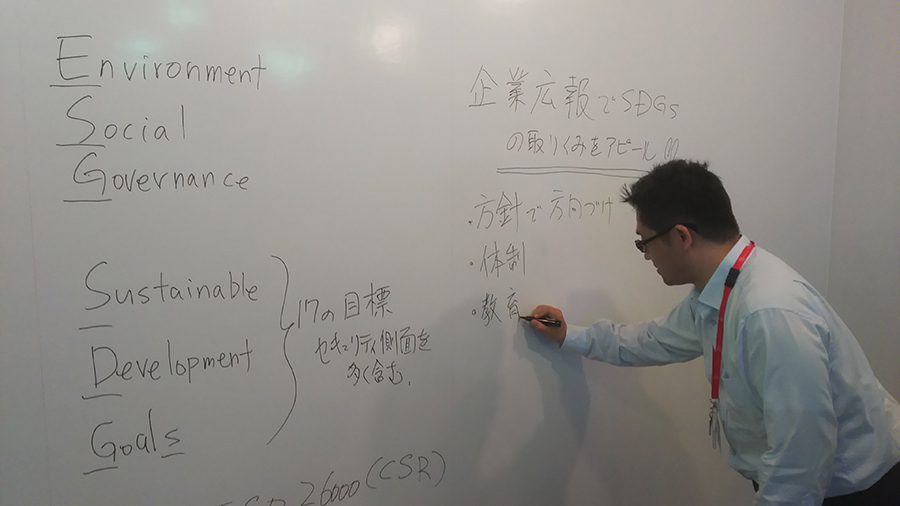 Environment
Social
Governance
Sustainable
Development
Goals
17の目標
セキュリティ側面を
多く含む。
26000(CSR)
企業広報でSDGs
の取りくみをアピール
・方針で方向づけ
・体制
・教育